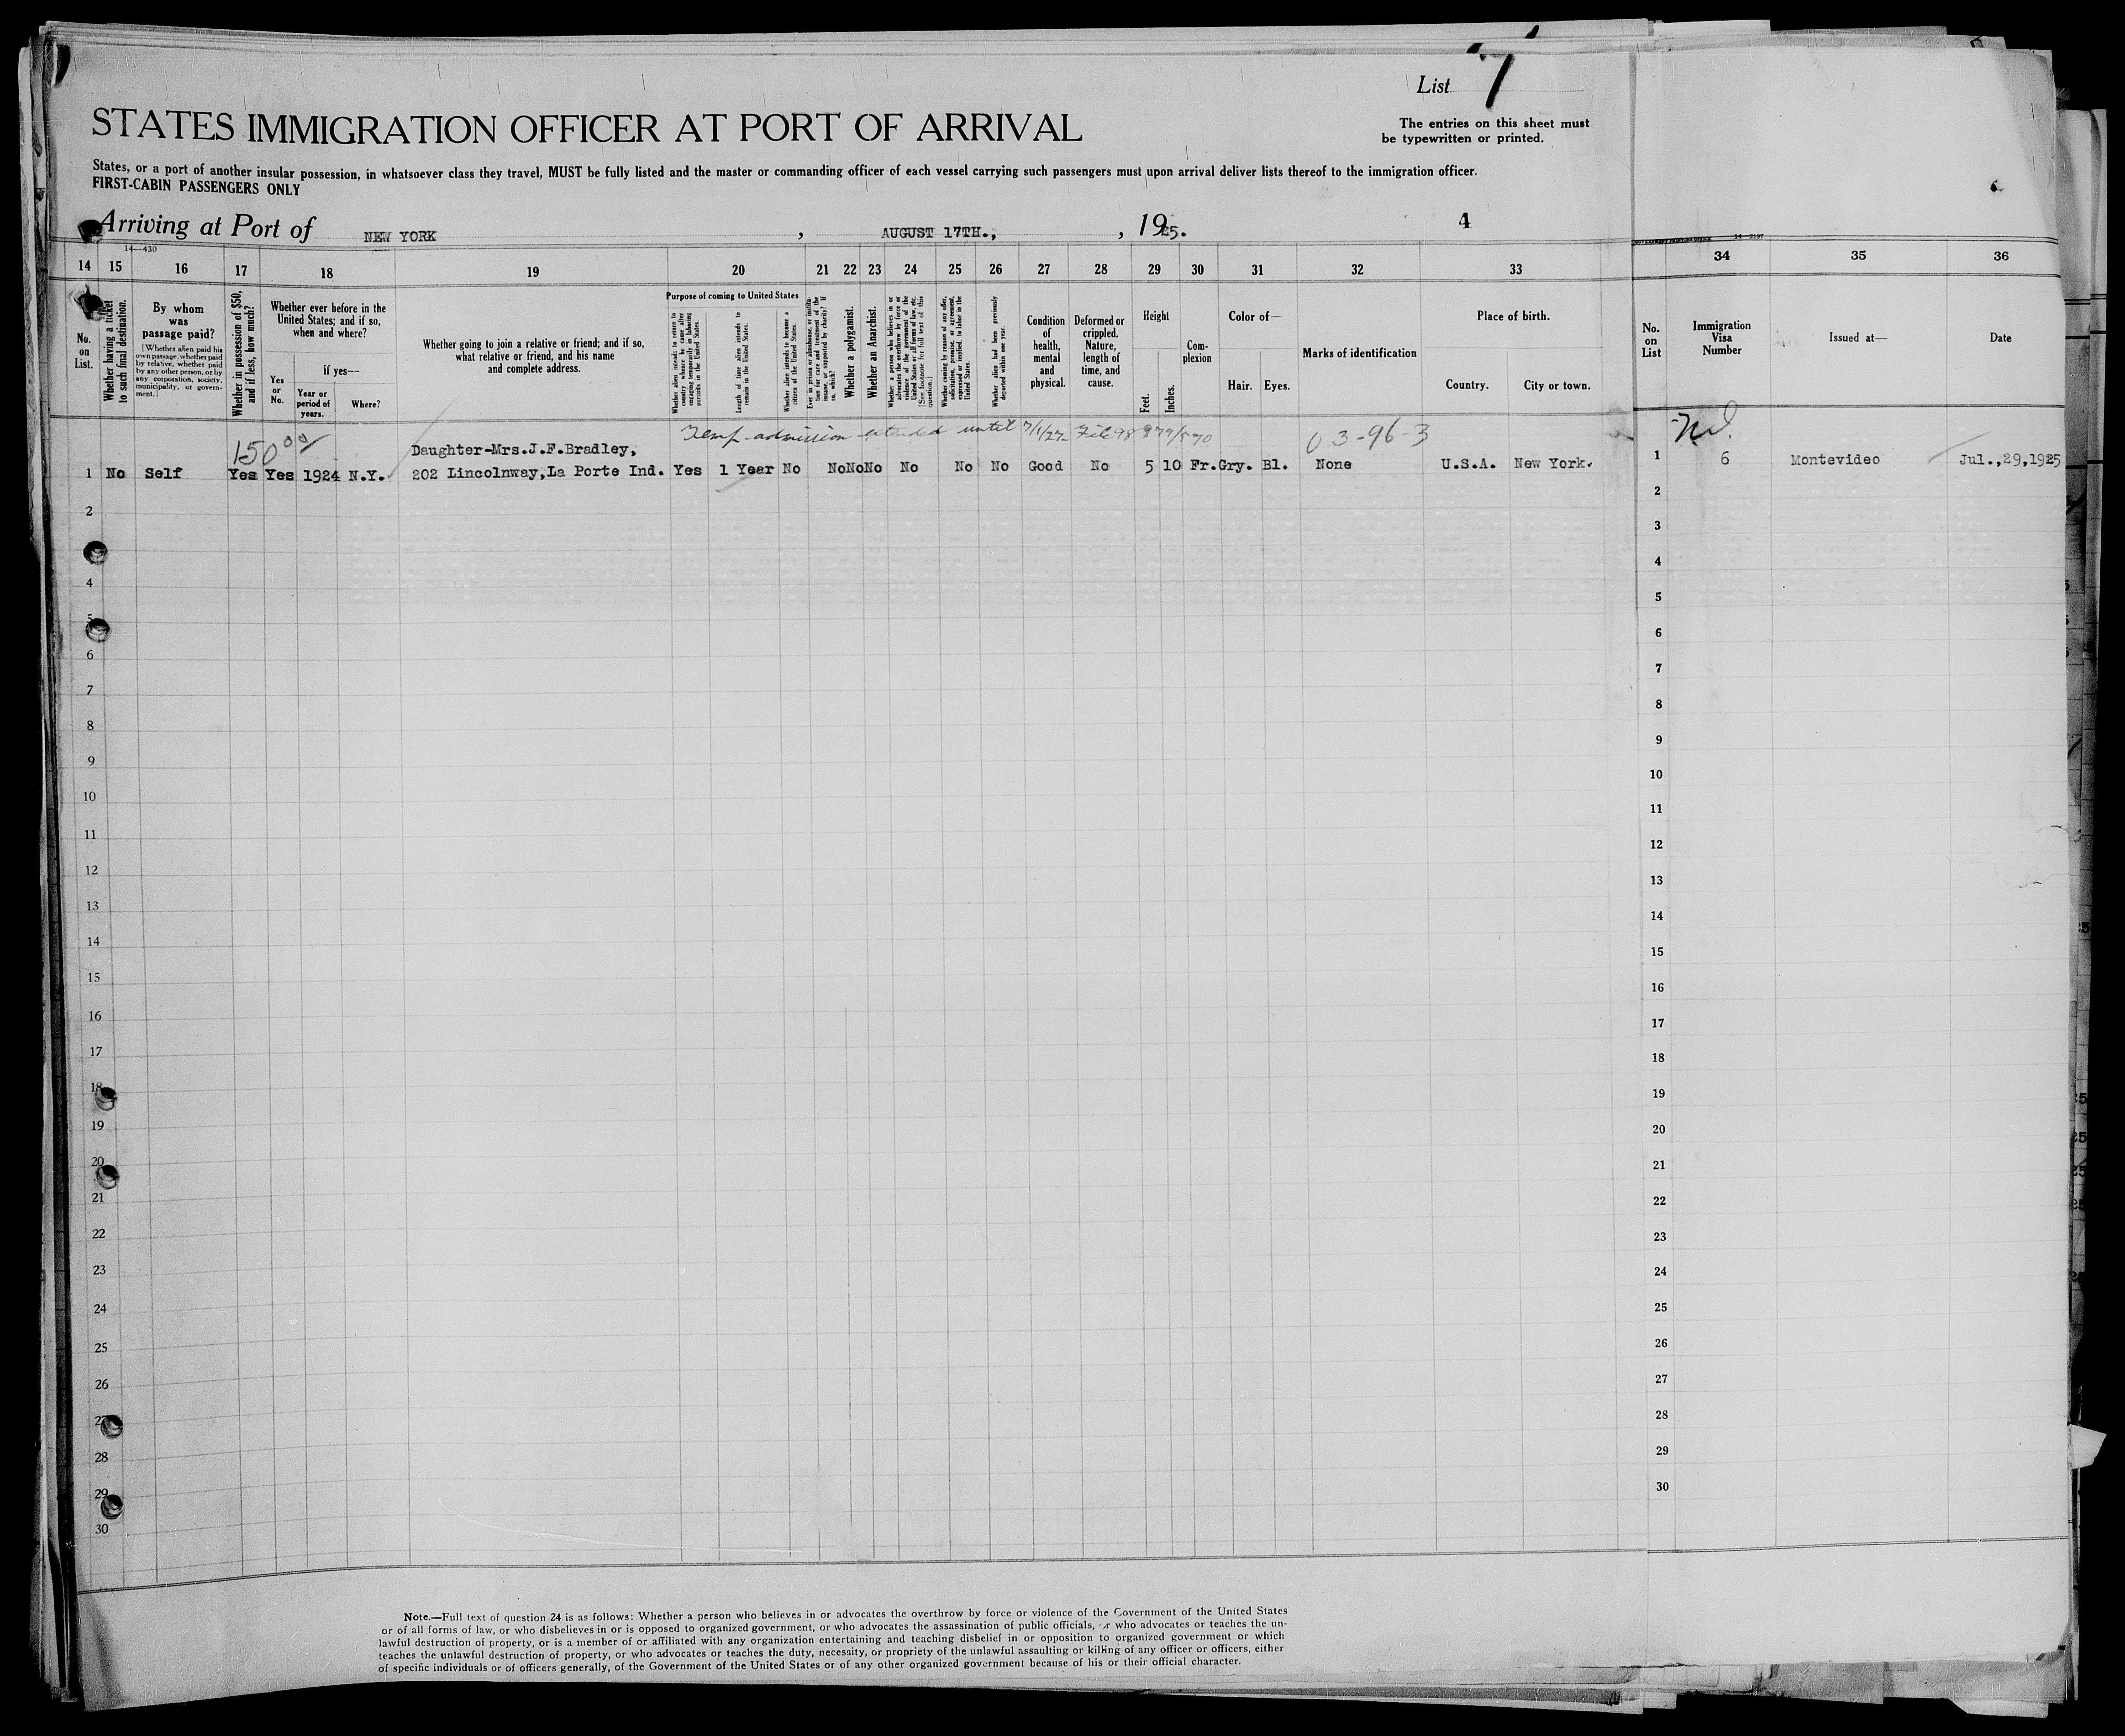 List 7
STATES IMMIGRATION OFFICER AT PORT OF ARRIVAL
The entries on this sheet must
be typewritten or printed.
States, or a port of another insular possession, in whatsoever class they travel, MUST be fully listed and the master or commanding officer of each vessel carrying such passengers must upon arrival deliver lists thereof to the immigration officer.
FIRST-CABIN PASSENGERS ONLY
Arriving at Port of NEW YORK , AUGUST 17TH., , 1925. 4
14—430
14 15 16 17 18 19 20 21 22 23 24 25 26 27 28 29 30 31 32 33 34 35 36
No. on List.
Whether having a ticket to such final destination.
By whom was passage paid?
[Whether alien paid his own passage, whether paid by relative, whether paid by any other person, or by any corporation, society, municipality, or government.]
Whether in possession of $50, and if less, how much?
Whether ever before in the United States; and if so, when and where?
Yes or No.
if yes—
Year or period of years.
Where?
Whether going to join a relative or friend; and if so, what relative or friend, and his name and complete address.
Purpose of coming to United States
Whether alien intends to return to country whence he came after engaging temporarily in laboring pursuits in the United States.
Length of time alien intends to remain in the United States.
Whether alien intends to become a citizen of the United States.
Ever in prison or almshouse, or institution for care and treatment of the insane, or supported by charity? If so, which?
Whether a polygamist.
Whether an Anarchist.
Whether a person who believes in or advocates the overthrow by force or violence of the government of the United States or all forms of law, etc. [See footnote for full text of this question.]
Whether coming by reason of any offer, solicitation, promise, or agreement, expressed or implied, to labor in the United States.
Whether alien had been previously deported within one year.
Condition of health, mental and physical.
Deformed or crippled. Nature, length of time, and cause.
Height
Feet.
Inches.
Complexion
Color of—
Hair.
Eyes.
Marks of identification
Place of birth.
Country.
City or town.
No. on List
Immigration Visa Number
Issued at—
Date
150 00
Temp admission extended until 7/1/27 File 98879/570
03-96-3
Daughter-Mrs.J.F.Bradley,
1 No Self Yes Yes 1924 N.Y. 202 Lincolnway,La Porte Ind. Yes 1 Year No No No No No No No Good No 5 10 Fr. Gry. Bl. None U.S.A. New York. 1 6 Montevideo Jul.,29,1925
2 2
3
4 4
5 5
6 6
7 7
8 8
9 9
10 10
11 11
12 12
13 13
14 14
15 15
16 16
17 17
18 18
19 19
20 20
21 21
22 22
23 23
24 24
25 25
26 26
27 27
28 28
29 29
30 30
Note.—Full text of question 24 is as follows: Whether a person who believes in or advocates the overthrow by force or violence of the Government of the United States
or of all forms of law, or who disbelieves in or is opposed to organized government, or who advocates the assassination of public officials, or who advocates or teaches the un-
lawful destruction of property, or is a member of or affiliated with any organization entertaining and teaching disbelief in or opposition to organized government or which
teaches the unlawful destruction of property, or who advocates or teaches the duty, necessity, or propriety of the unlawful assaulting or killing of any officer or officers, either
of specific individuals or of officers generally, of the Government of the United States or of any other organized government because of his or their official character.